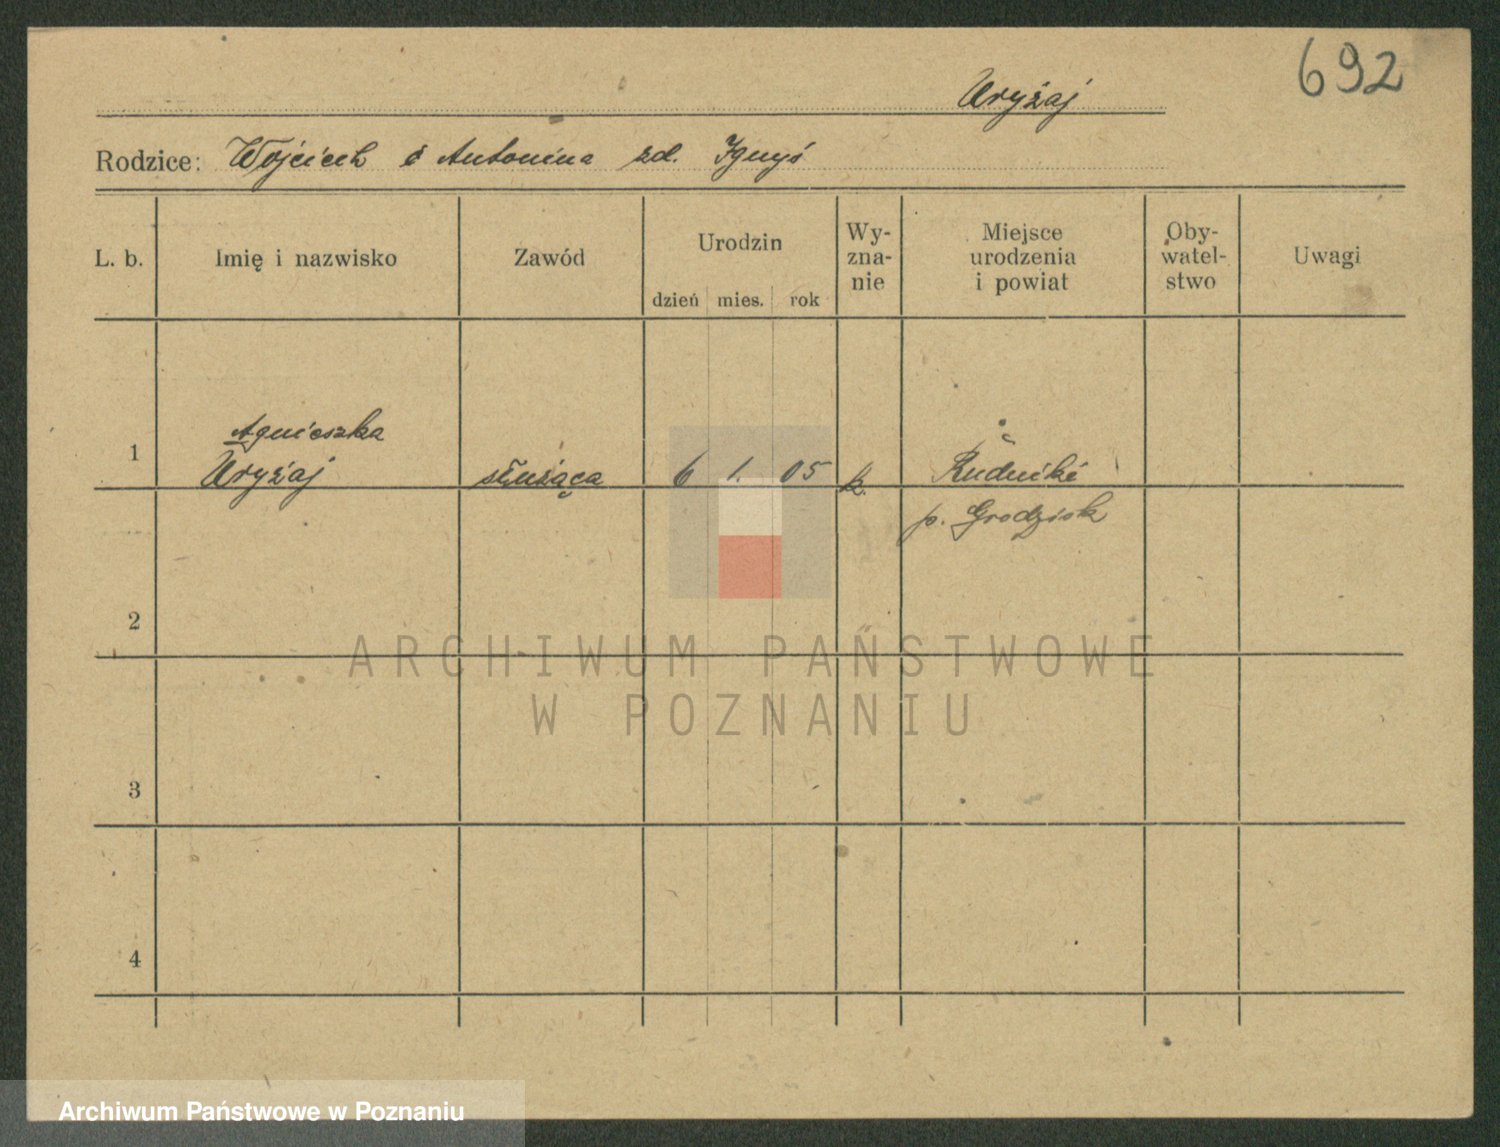 692
Uryżaj
Rodzice: Wojciech i Antonina zd. Ignyś
L. b.
Imię i nazwisko
Zawód
Urodzin
dzień mies. rok
Wy-
zna-
nie
Miejsce
urodzenia
i powiat
Oby-
watel-
stwo
Uwagi
1
Agnieszka
Uryżaj
służąca
6 1. 05
k.
Rudniki
p. Grodzisk
2
3
4
ARCHIWUM PAŃSTWOWE
W POZNANIU
Archiwum Państwowe w Poznaniu